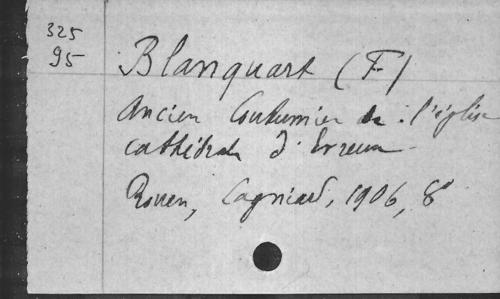 325
95
Blanquart (F)
Ancien Coutumier de l'église
cathédrale d'Evreux
Rouen, Cagniard, 1906, 8°